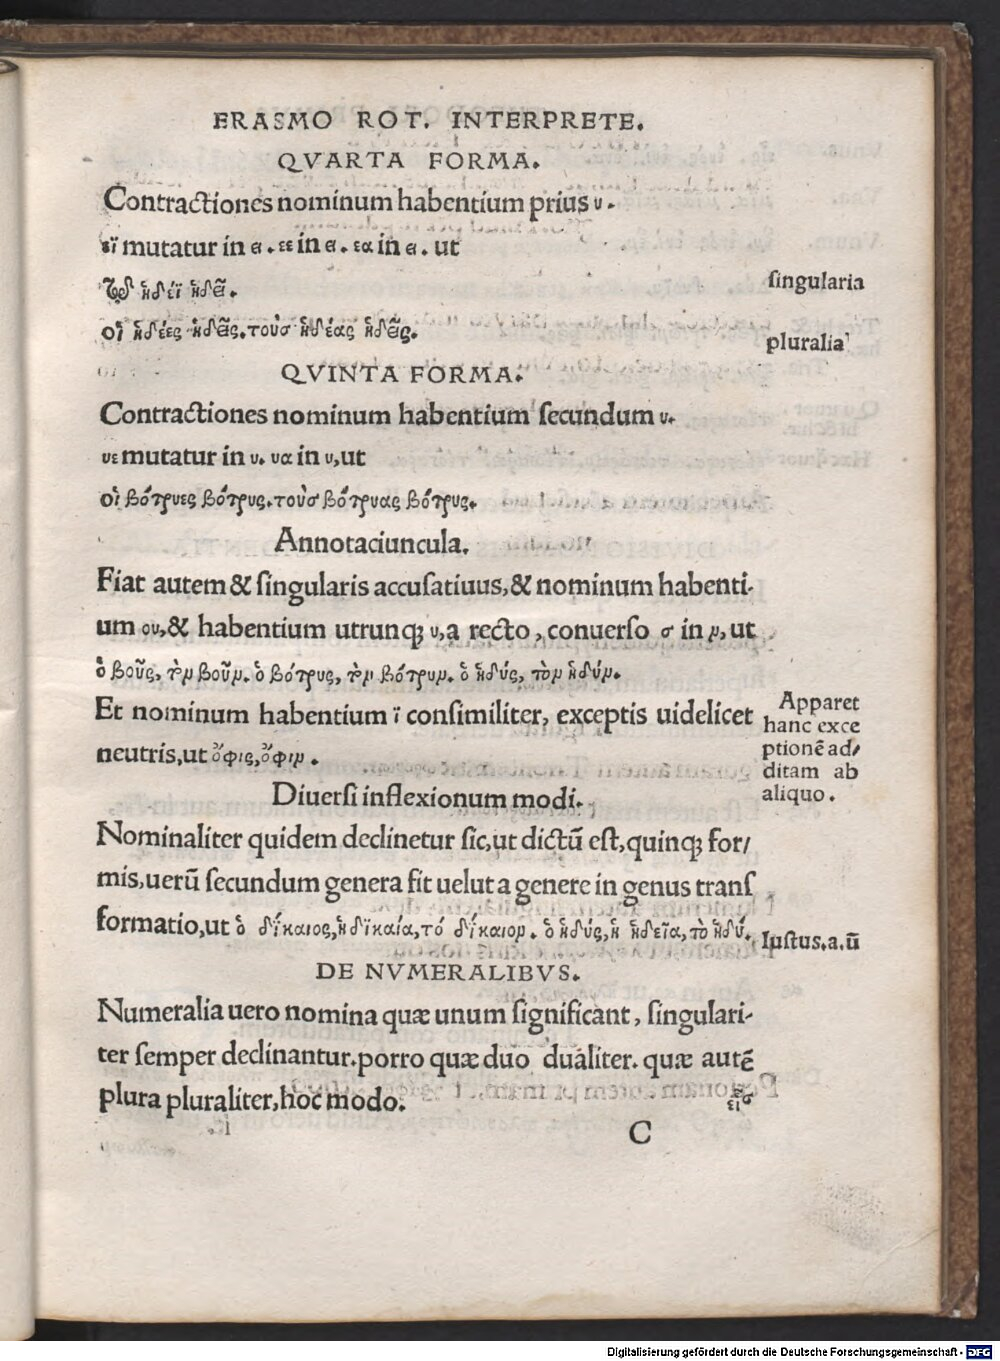 ERASMO ROT. INTERPRETE.
QVARTA FORMA.
Contractiones nominum habentium prius υ.
εϊ mutatur in ει. εε in ει. εα in ει. ut
τῷ ἡδέϊ ἡδεῖ.
singularia
οἱ ἡδέες ἡδεῖς. τοὺσ ἡδέας ἡδεῖς.
pluralia
QVINTA FORMA.
Contractiones nominum habentium secundum υ.
υε mutatur in υ. υα in υ, ut
οἱ βότρυες βότρυς. τοὺσ βότρυας βότρυς.
Annotaciuncula.
Fiat autem & singularis accusatiuus, & nominum habenti-
um ου, & habentium utrunq; υ, a recto, conuerso σ in ν, ut
ὁ βοῦς, τὸν βοῦν. ὁ βότρυς, τὸν βότρυν. ὁ ἡδύς, τὸν ἡδύν.
Et nominum habentium ϊ consimiliter, exceptis uidelicet
neutris, ut ὄφις, ὄφιν.
Apparet
hanc exce
ptionē ad/
ditam ab
aliquo.
Diuersi inflexionum modi.
Nominaliter quidem declinetur sic, ut dictū est, quinq; for/
mis, uerū secundum genera fit uelut a genere in genus trans
formatio, ut ὁ δίκαιος, ἡ δικαία, τό δίκαιον. ὁ ἡδύς, ἡ ἡδεῖα, το ἡδύ.
Iustus. a. ū
DE NVMERALIBVS.
Numeralia uero nomina quæ unum significant, singulari-
ter semper declinantur. porro quæ duo dualiter. quæ autē
plura pluraliter, hoc modo.
εἷσ
C
Digitalisierung gefördert durch die Deutsche Forschungsgemeinschaft - DFG